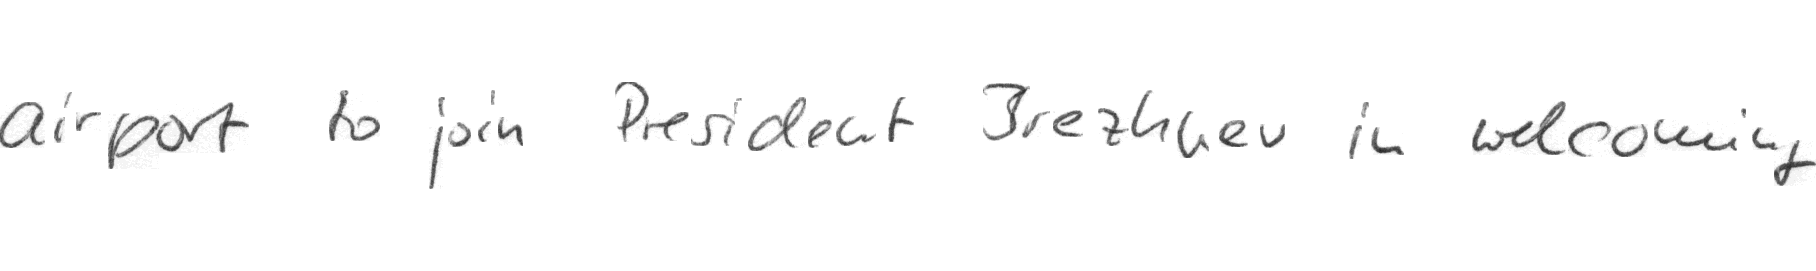 airport to join President Brezhnev in welcoming